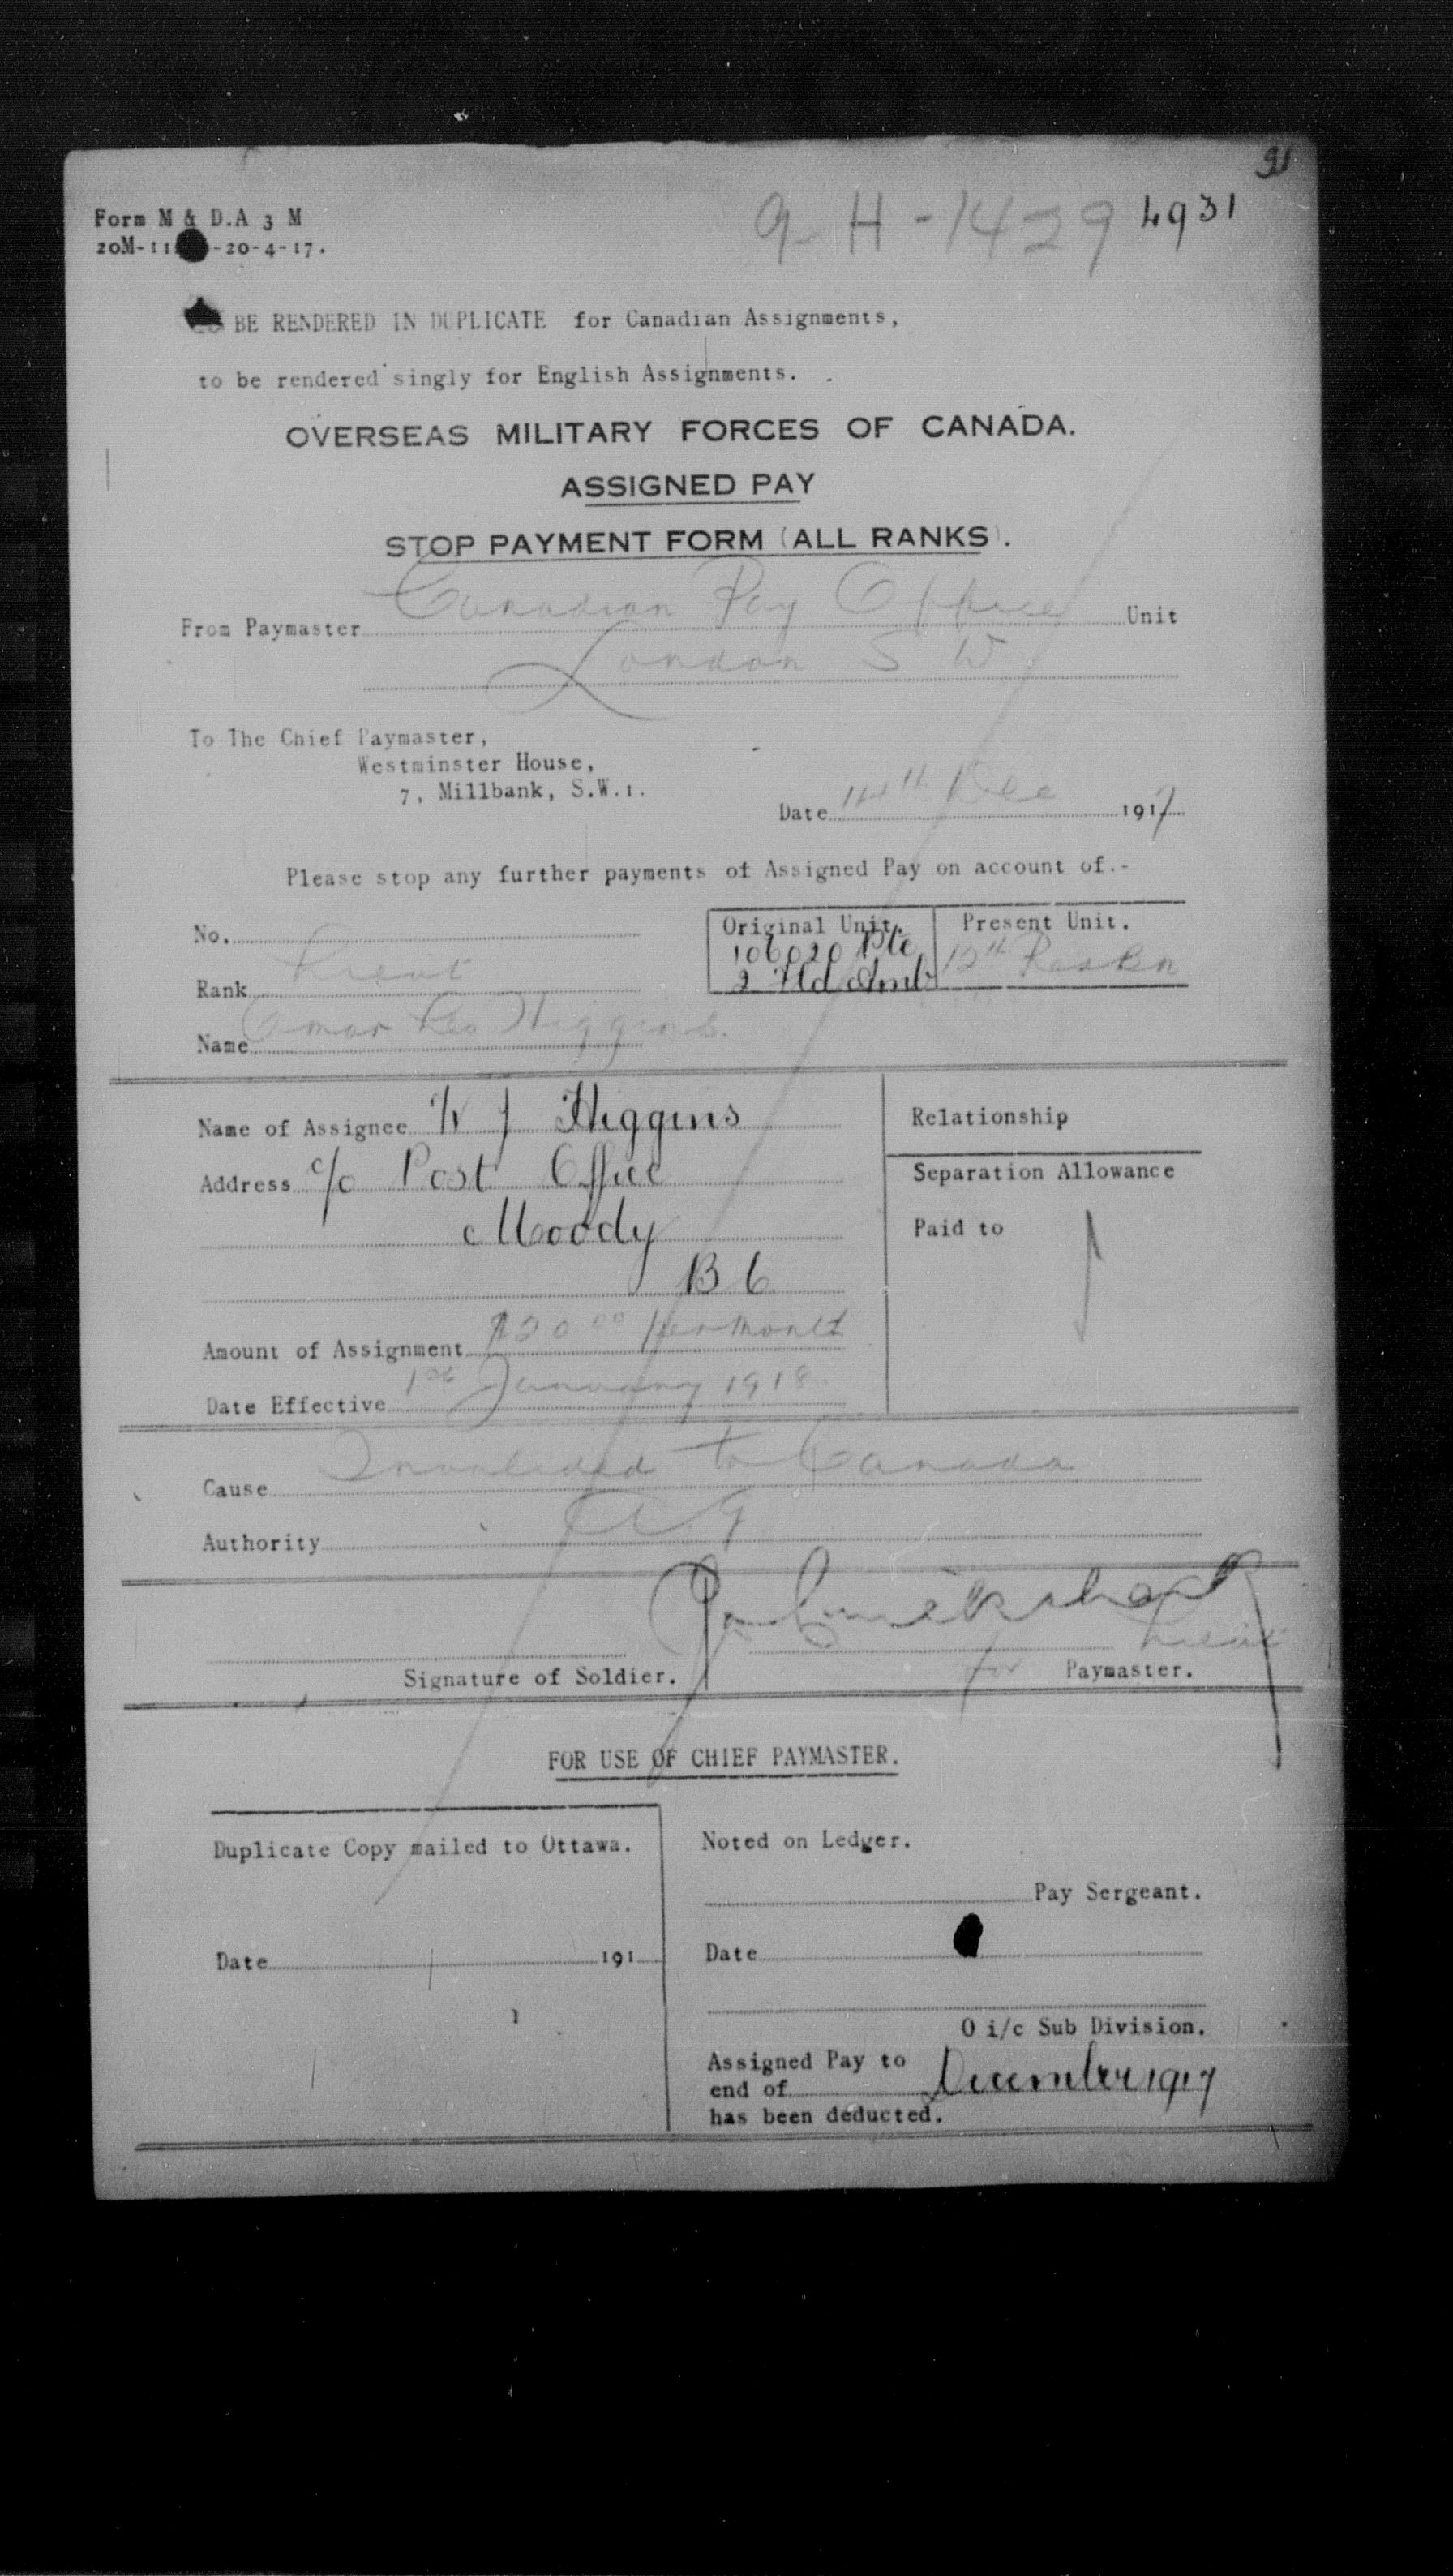 Form M & D.A 3 M
9-H-1429 4931
-20-4-17.
BE RENDERED IN DUPLICATE for Canadian Assignments,
to be rendered singly for English Assignments.
OVERSEAS MILITARY FORCES OF CANADA.
ASSIGNED PAY
STOP PAYMENT FORM (ALL RANKS).
From Paymaster Canadian Pay Office Unit
London S W
To The Chief Paymaster,
Westminster House,
7, Millbank, S.W.1.
Date 14th Dec 1917
Please stop any further payments of Assigned Pay on account of.-
No.
Original Unit. Present Unit.
106020 Pte
2 Fld Amb 12th Res Bn
Rank Lieut
Name Omar Leo Higgins.
Name of Assignee W J Higgins
Relationship
Address c/o Post Office
Separation Allowance
Moody
Paid to
B C
Amount of Assignment $20 00 per month
Date Effective 1st January 1918.
Cause Invalided to Canada
Authority A.G
Lieut
Signature of Soldier. for Paymaster.
FOR USE OF CHIEF PAYMASTER.
Duplicate Copy mailed to Ottawa.
Noted on Ledger.
Pay Sergeant.
Date 191
Date
O i/c Sub Division.
Assigned Pay to
end of December 1917
has been deducted.